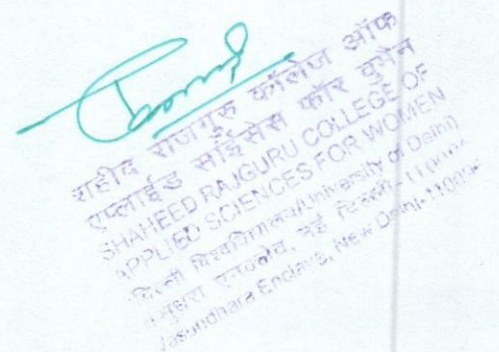 शहीद राजगुरु कॉलेज ऑफ
एप्लाईड साईंसेस फॉर वुमेन
SHAHEED RAJGURU COLLEGE OF
APPLIED SCIENCES FOR WOMEN
दिल्ली विश्वविद्यालय/University of Delhi)
वसुंधरा एनक्लेव, नई दिल्ली-
Vasundhara Enclave, New Delhi-110096